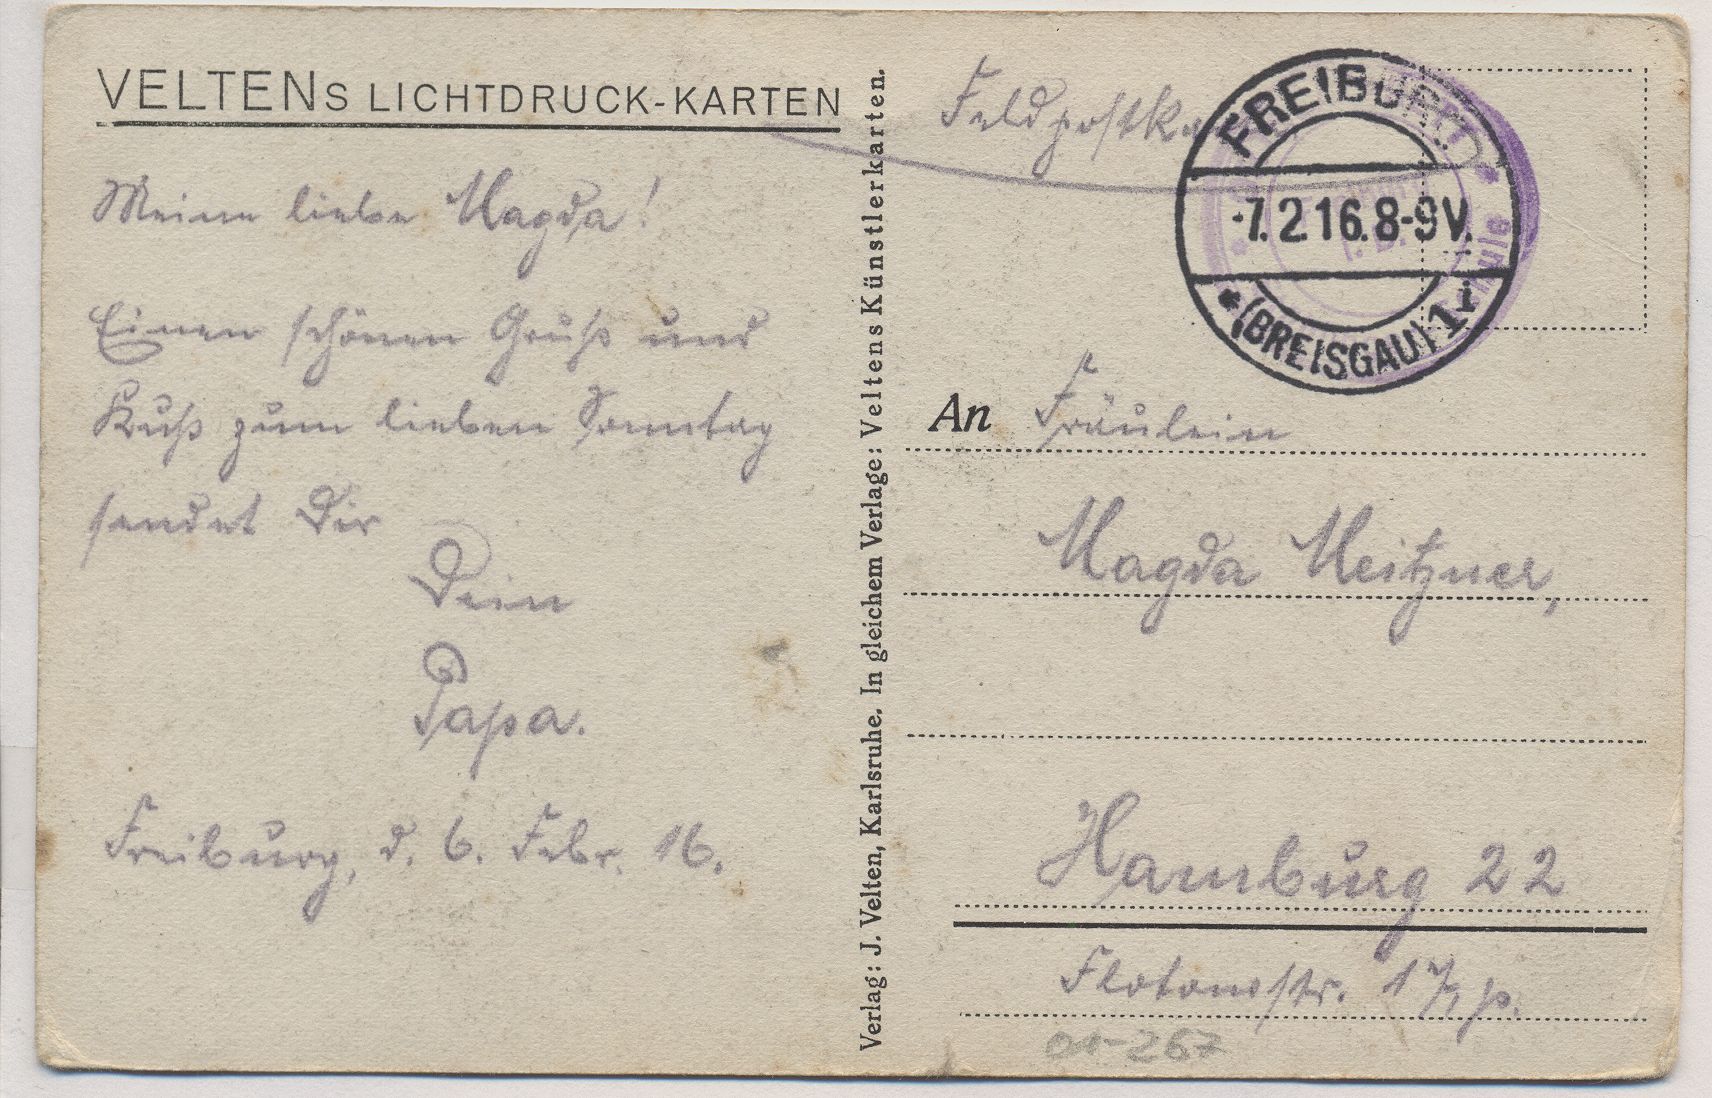 VELTENS LICHTDRUCK-KARTEN
Meine liebe Magda!
Einen schönen Gruß und
Kuß zum lieben Sonntag
sendet Dir
Dein
Papa.
Freiburg, d. 6. Febr. 16.
Verlag: J. Velten, Karlsruhe. In gleichem Verlage: Veltens Künstlerkarten.
Feldpostka
FREIBURG
-7.2.16.8-9V.
* (BREISGAU) 1 i
An Fräulein
Magda Meitzner,
Hamburg 22
Flotowstr. 17, p.
01-267